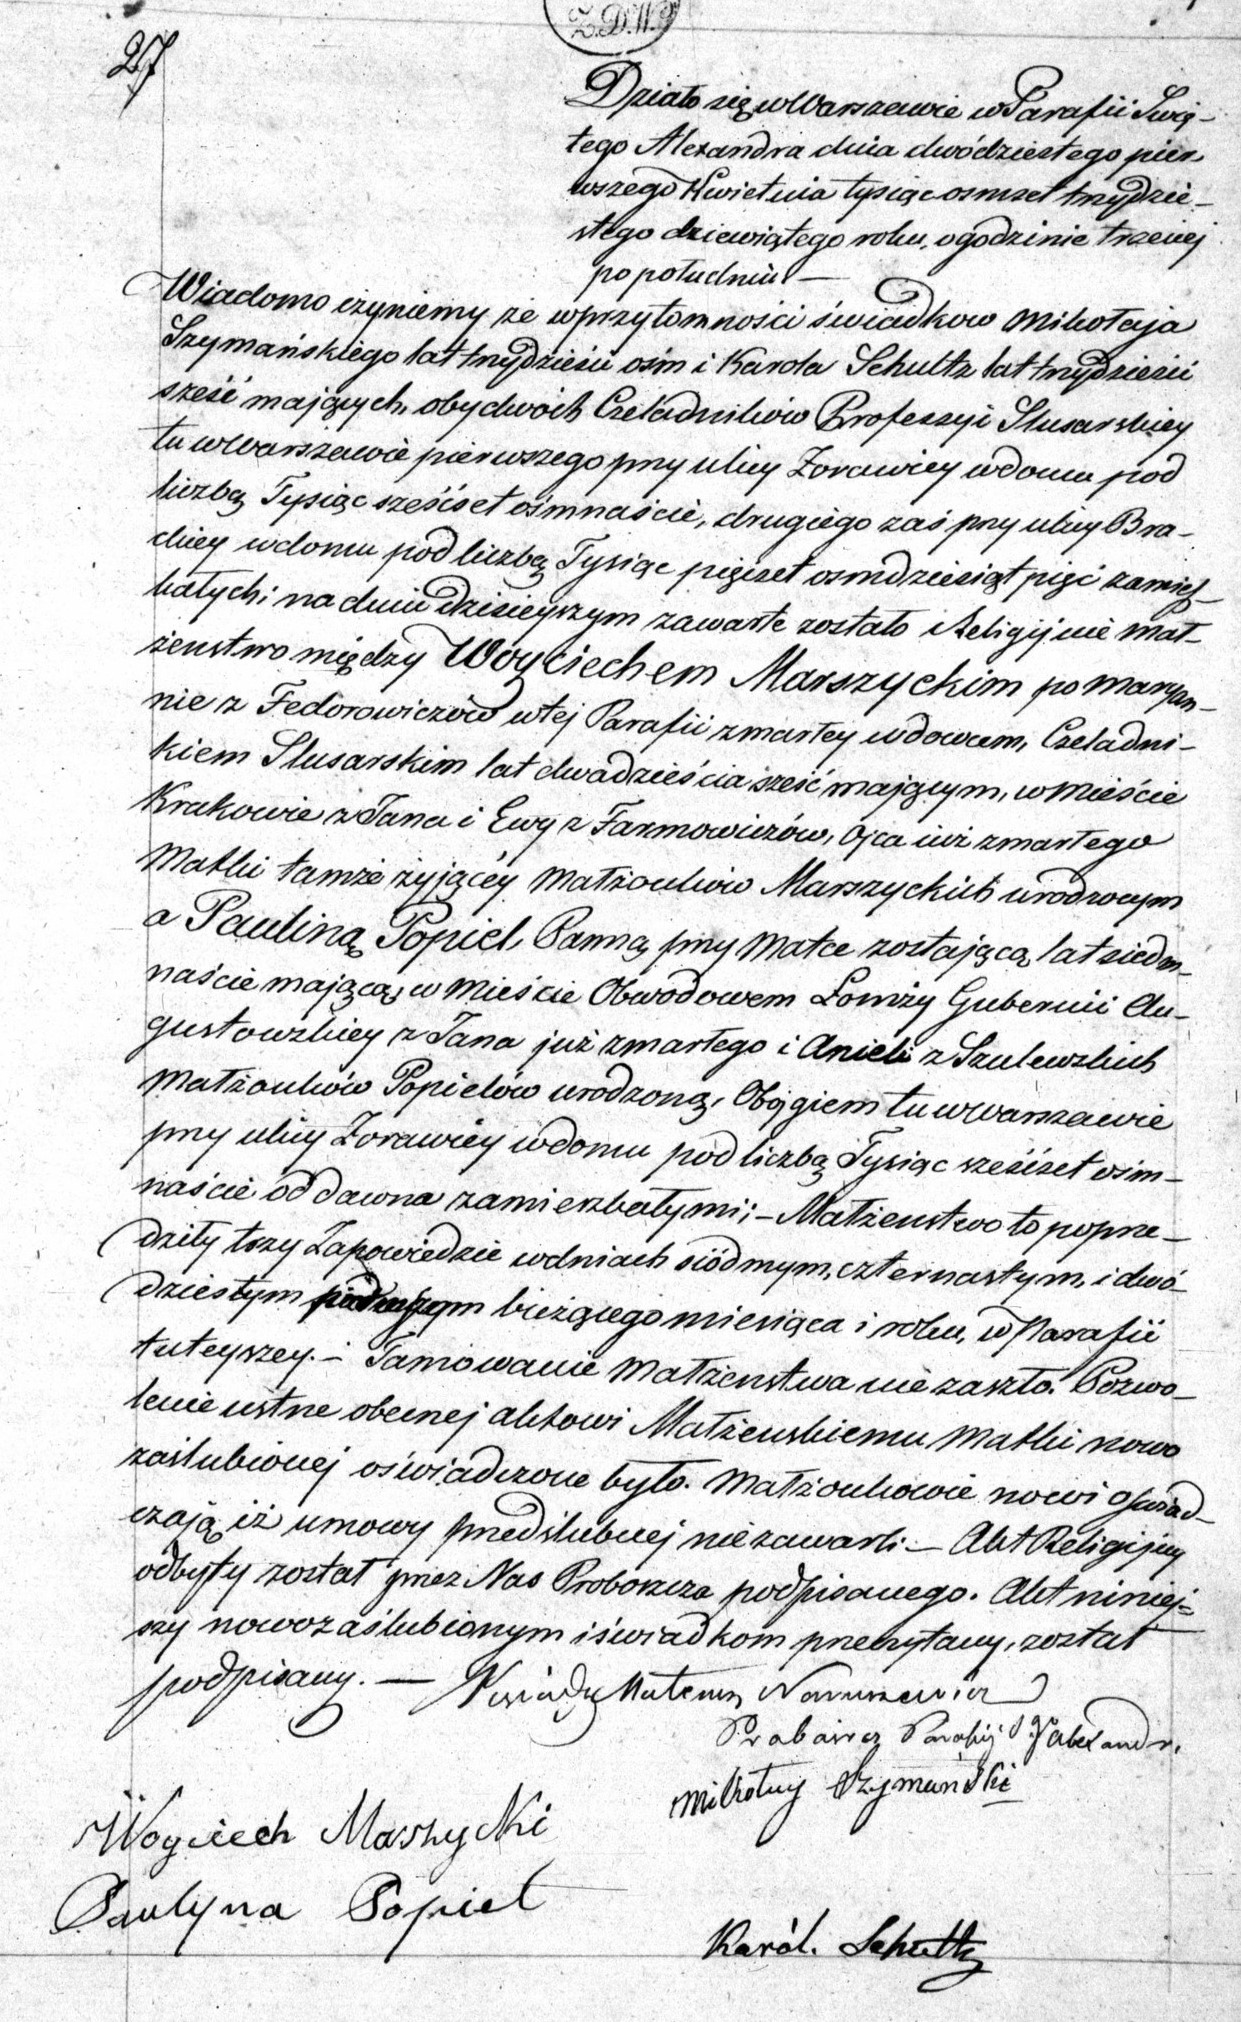 Z.D.W.
27
Działo się w Warszawie w Parafii Swię-
tego Alexandra dnia dwódziestego pier-
wszego Kwietnia tysiąc osmset trzydzie-
stego dziewiątego roku, o godzinie trzeciej
po południu —
Wiadomo czyniemy że w przytomności świadkow Mikołaja
Szymańskiego lat trzydzieści ośm i Karola Schultz lat trzydzieści
sześć mających, obydwóch Czeladników Professyi Slusarskiey
tu w Warszawie pierwszego przy ulicy Zorawiey w domu pod
liczbą Tysiąc sześćset ośmnaście, drugiego zaś przy ulicy Bra-
ckiey w domu pod liczbą Tysiąc pięcset osmdziesiąt pięć zamiesz-
kałych; na dniu dzisieyszym zawarte zostało Religijnie Mał-
żeństwo między Woyciechem Marszyckim po Maryan-
nie z Fedorowiczów w tej Parafii zmarłey wdowcem, Czeladni-
kiem Slusarskim lat dwadzieścia sześć mającym, w Mieście
Krakowie z Jana i Ewy z Farmowiczów, Ojca już zmarłego
Matki tamże żyjącéy Małżonków Marszyckich urodzonym
a Pauliną Popiel, Panną przy Matce zostającą, lat siedm-
naście mającą, w Mieście Obwodowem Łomży Gubernii Au-
gustowskiey z Jana już zmarłego i Anieli z Szulewskich
Małżonków Popielów urodzoną, Obojgiem tu w Warszawie
przy ulicy Zorawiéy w domu pod liczbą Tysiąc sześćset ośm-
naście od dawna zamieszkałymi; - Małżeństwo to poprze-
dziły trzy Zapowiedzie w dniach siódmym, czternastym, i dwó-
dziestym bieżącego miesiąca i roku, w Parafii
tuteyszey. - Tamowanie Małżeństwa nie zaszło. Pozwo-
lenie ustne obecnej aktowi Małżeńskiemu Matki nowo
zaślubionej oświadczone było. Małżonkowie nowi oświad-
czają iż umowy przedślubnej niezawarli. - Akt Religijny
odbyty został przez Nas Proboszcza podpisanego. Akt niniej-
szy nowozaślubionym i świadkom przeczytany, został
podpisany. — Xiądz Mateusz Naruszewicz
Probosz Parafij S. Alexandr.
Mikołay Szymański
Woyciech Marszycki
Paulyna Popiel
Karól. Schultz